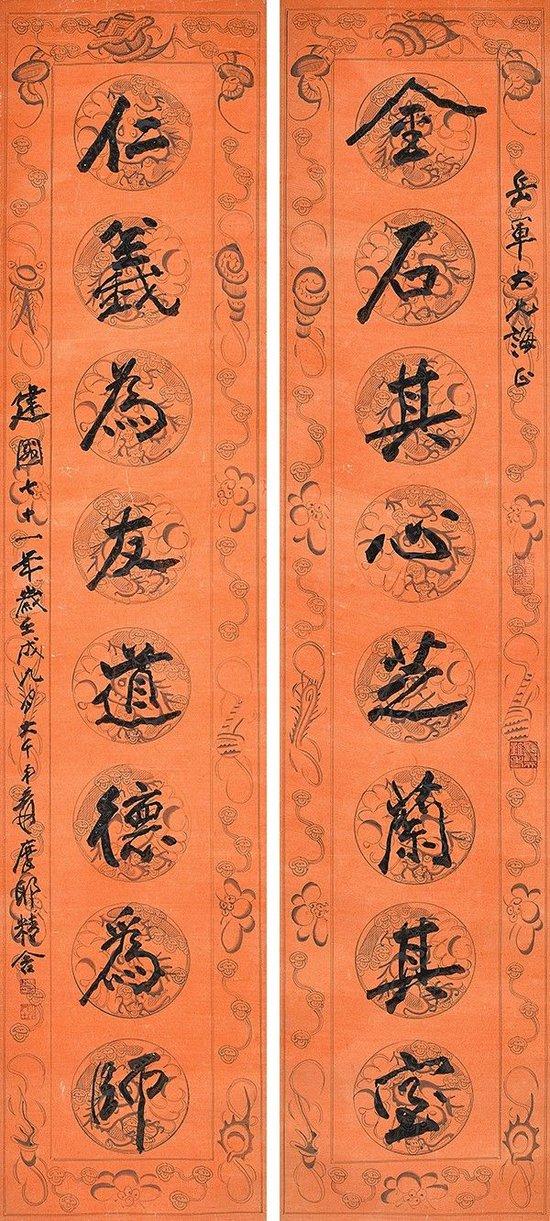 岳軍大兄誨正
金石其心芝蘭其室
仁義為友道德爲師
建國七十一年歲壬戌九月大千弟爰摩耶精舍